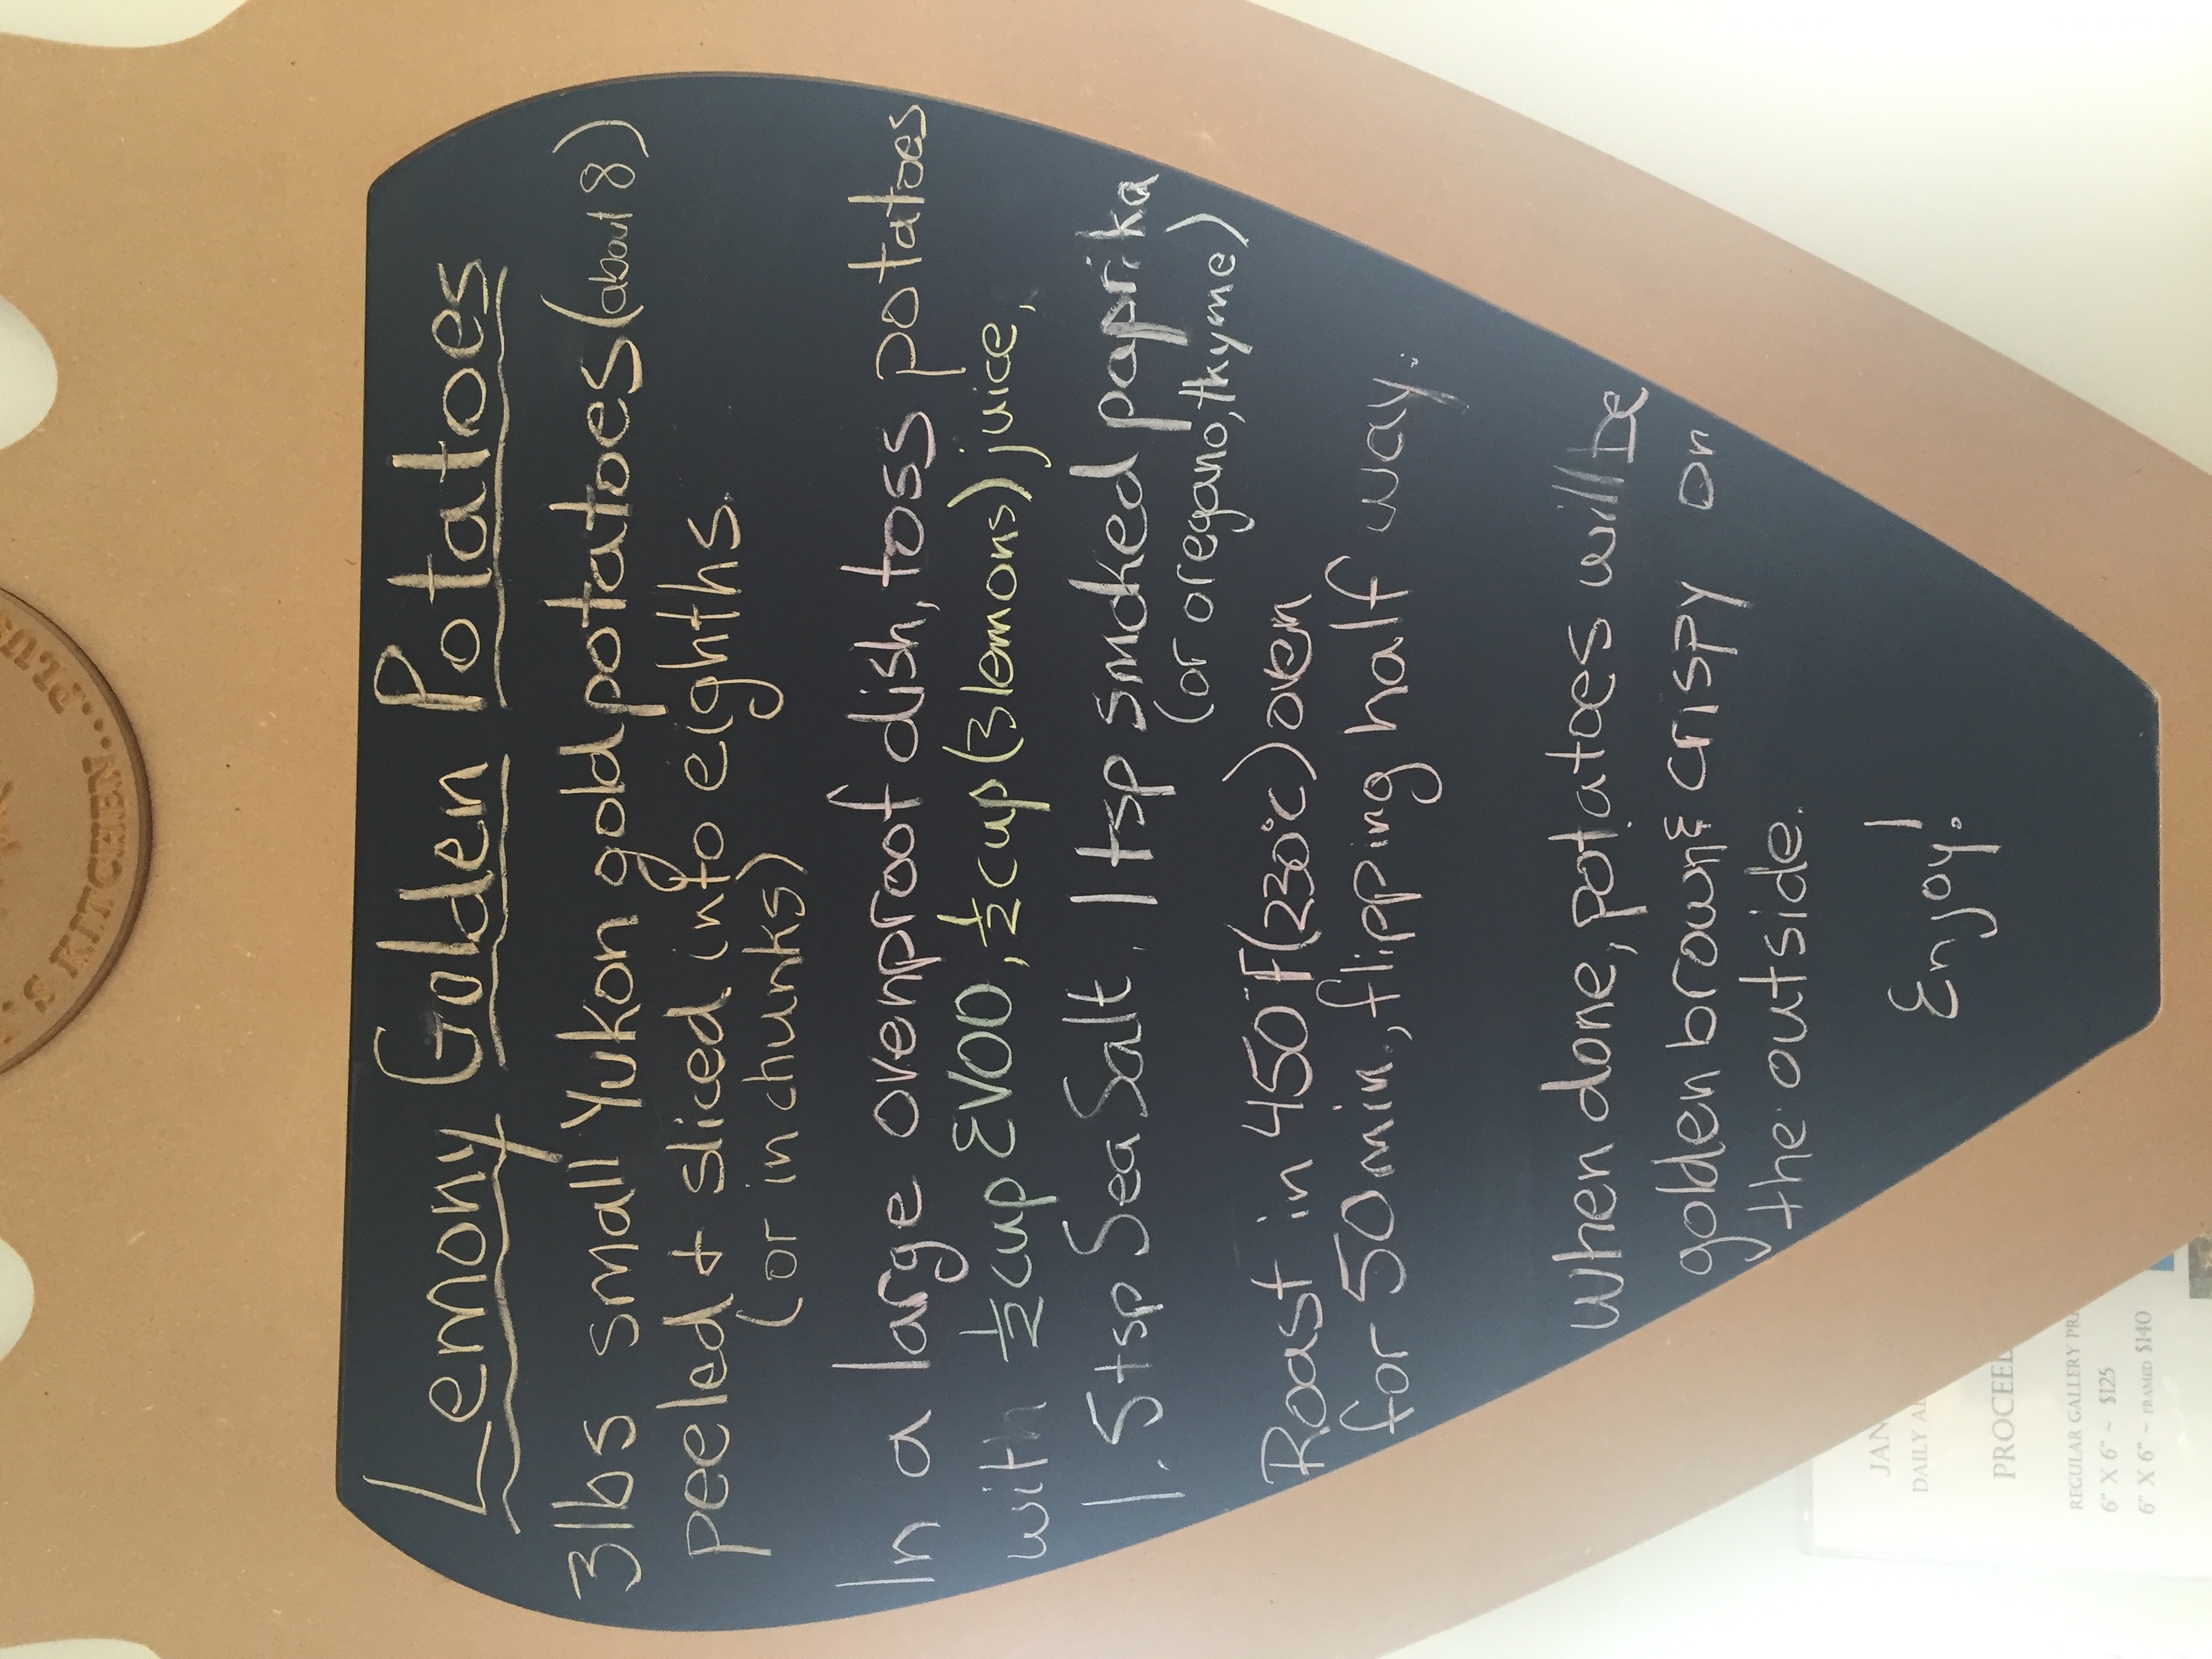 S KITCHEN...PLUS
Lemony Golden Potatoes
3 lbs small Yukon gold potatoes (about 8)
peeled + sliced into eighths.
(or in chunks)
In a large ovenproof dish, toss potatoes
with ½ cup EVOO, ½ cup (3 lemons) juice,
1.5 tsp Sea Salt, 1 tsp smoked paprika
(or oregano, thyme)
Roast in 450°F (230°C) oven
for 50 min., flipping half way.
When done, potatoes will be
golden brown & crispy on
the outside.
Enjoy!
JAN
DAILY
PROCEED
REGULAR GALLERY
6" X 6" ~ $125
6" X 6" ~ FRAMED $140